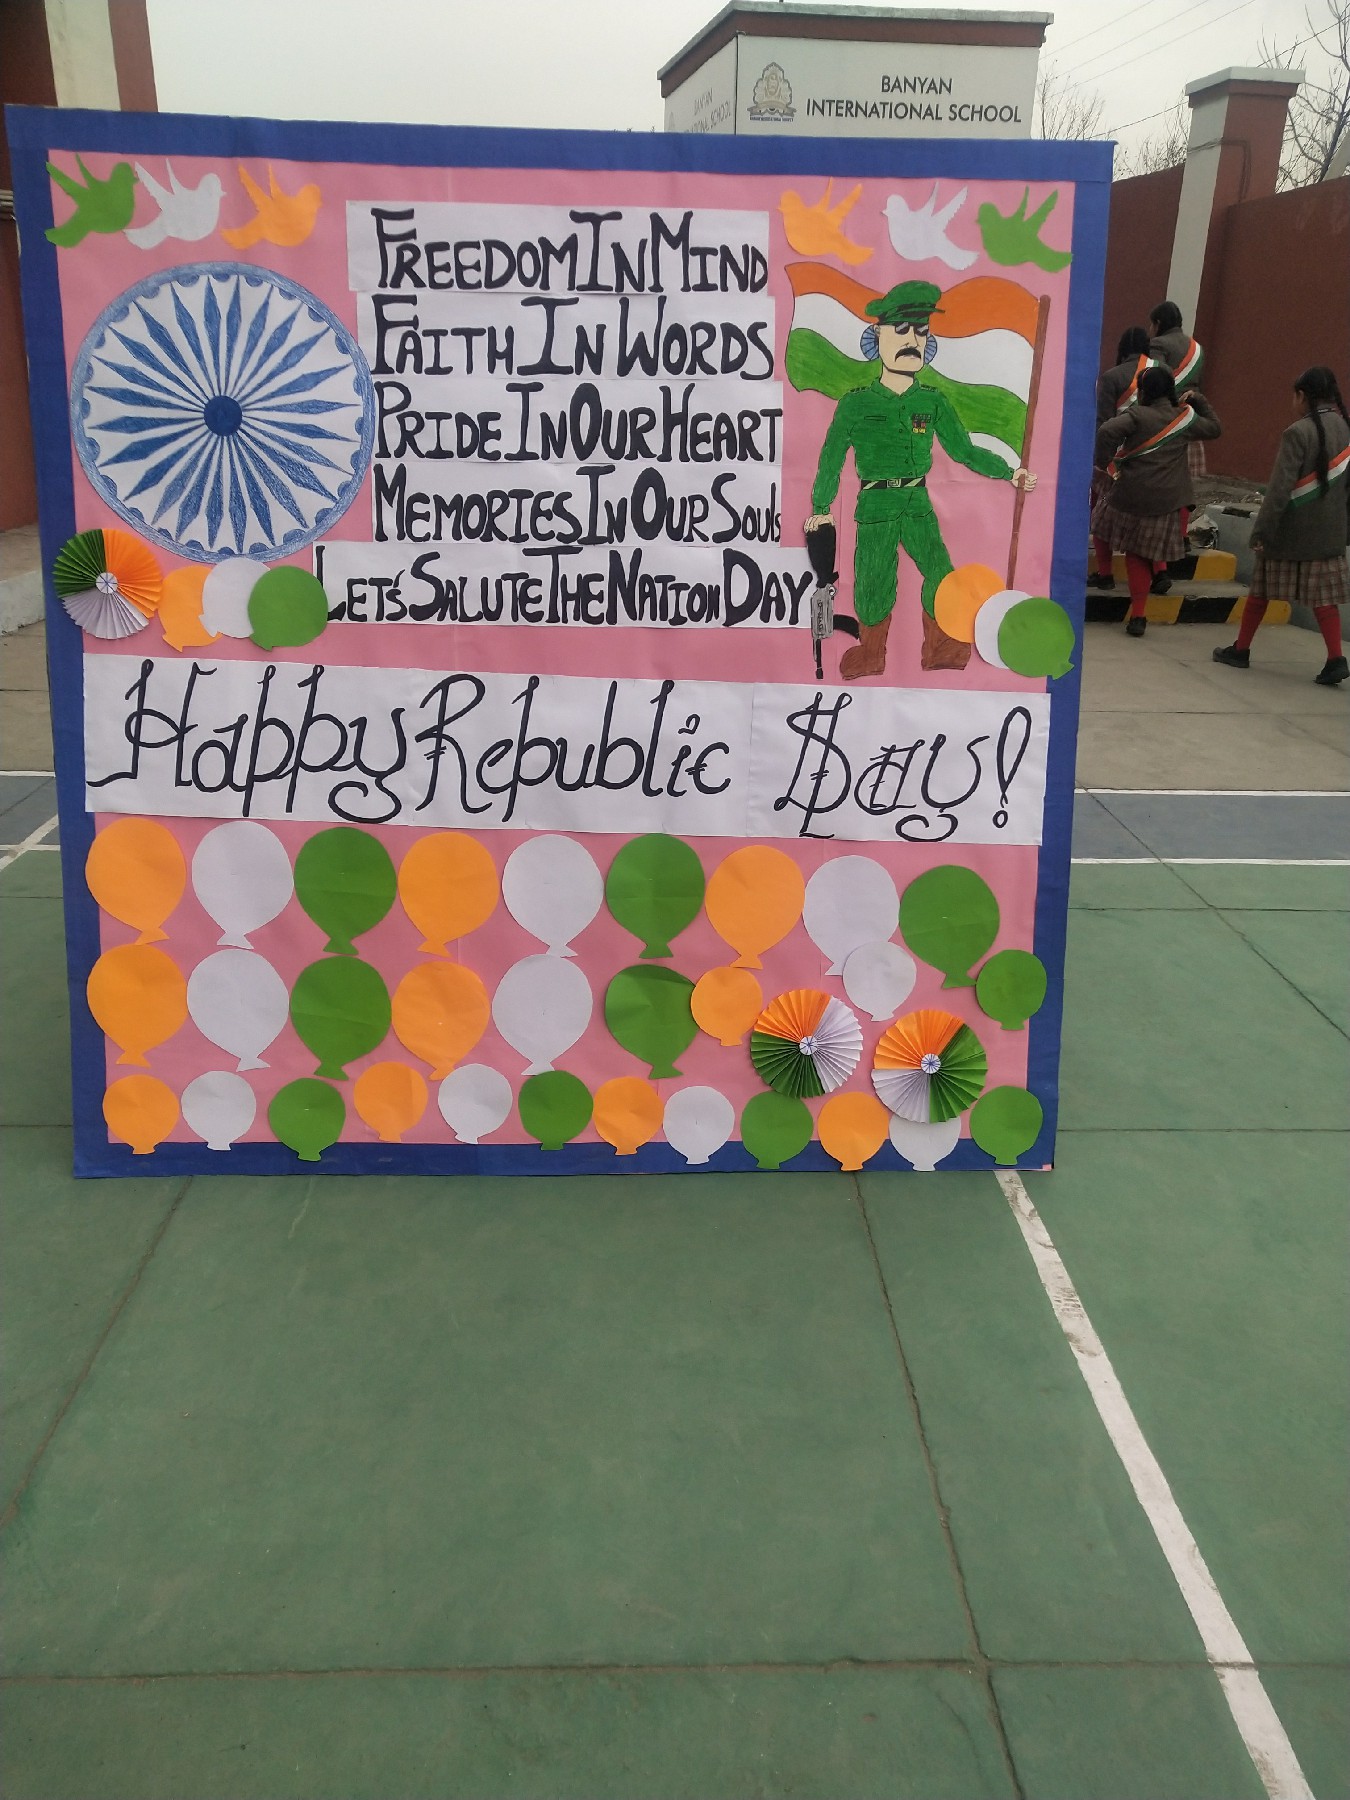 BANYAN
INTERNATIONAL SCHOOL
BANYAN
INTERNATIONAL SCHOOL
FREEDOM IN MIND
FAITH IN WORDS
PRIDE IN OUR HEART
MEMORIES IN OUR SOUls
LET'S SALUTE THE NATION DAY
Happy Republic Day!